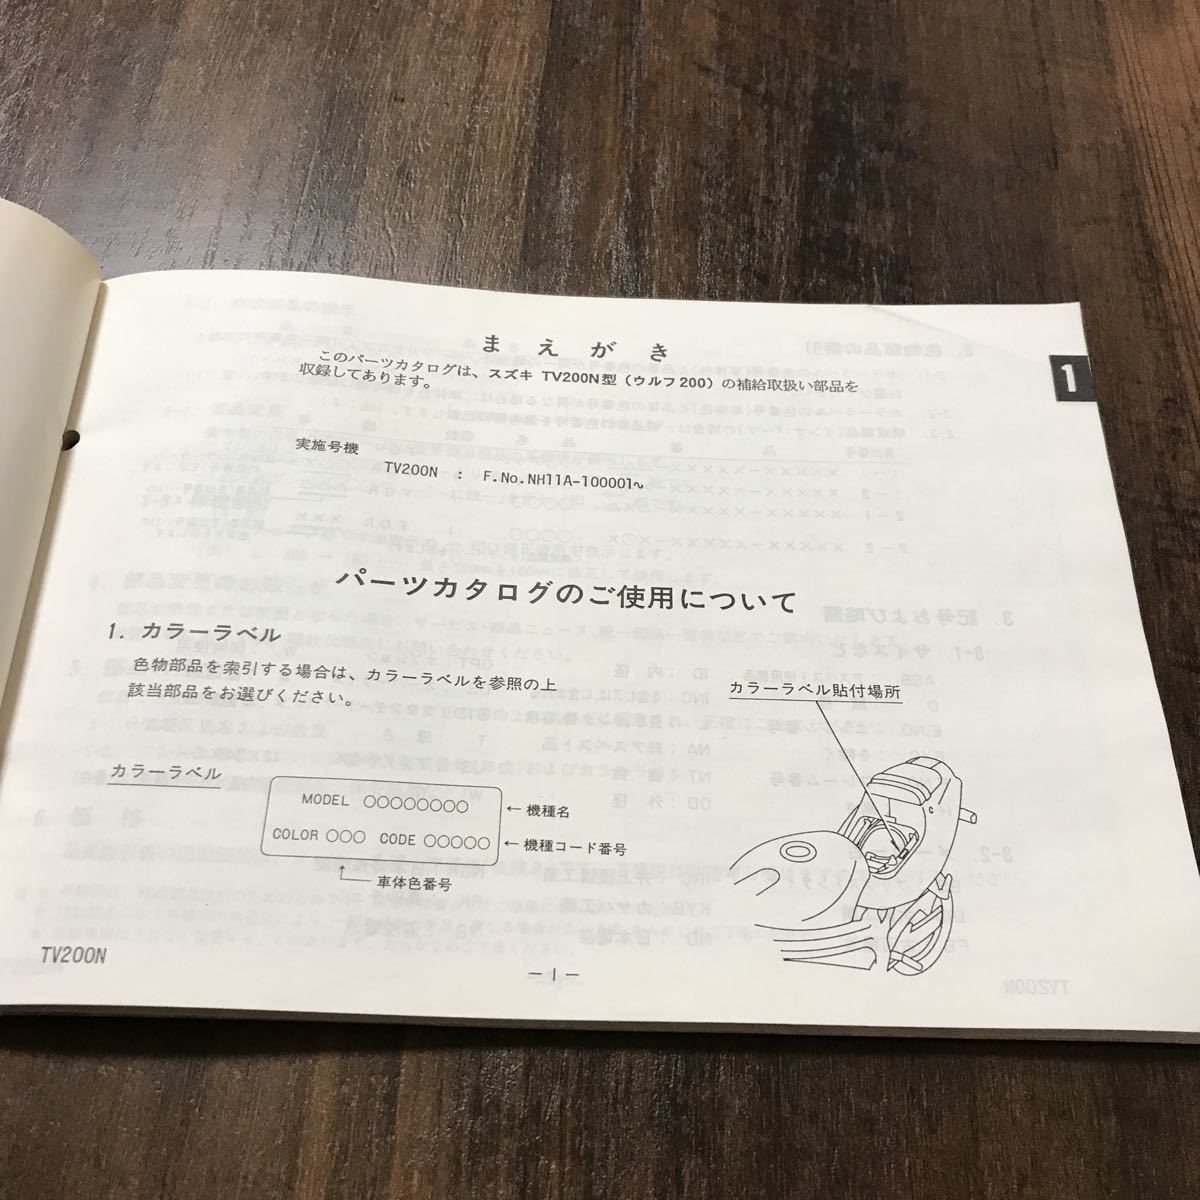 まえがき
このパーツカタログは、スズキ TV200N型（ウルフ200）の補給取扱い部品を
収録してあります。
1
実施号機
TV200N : F.No.NH11A-100001~
パーツカタログのご使用について
1. カラーラベル
色物部品を索引する場合は、カラーラベルを参照の上
該当部品をお選びください。
カラーラベル貼付場所
カラーラベル
MODEL ○○○○○○○○
←機種名
COLOR ○○○ CODE ○○○○○
←機種コード番号
車体色番号
TV200N
－1－